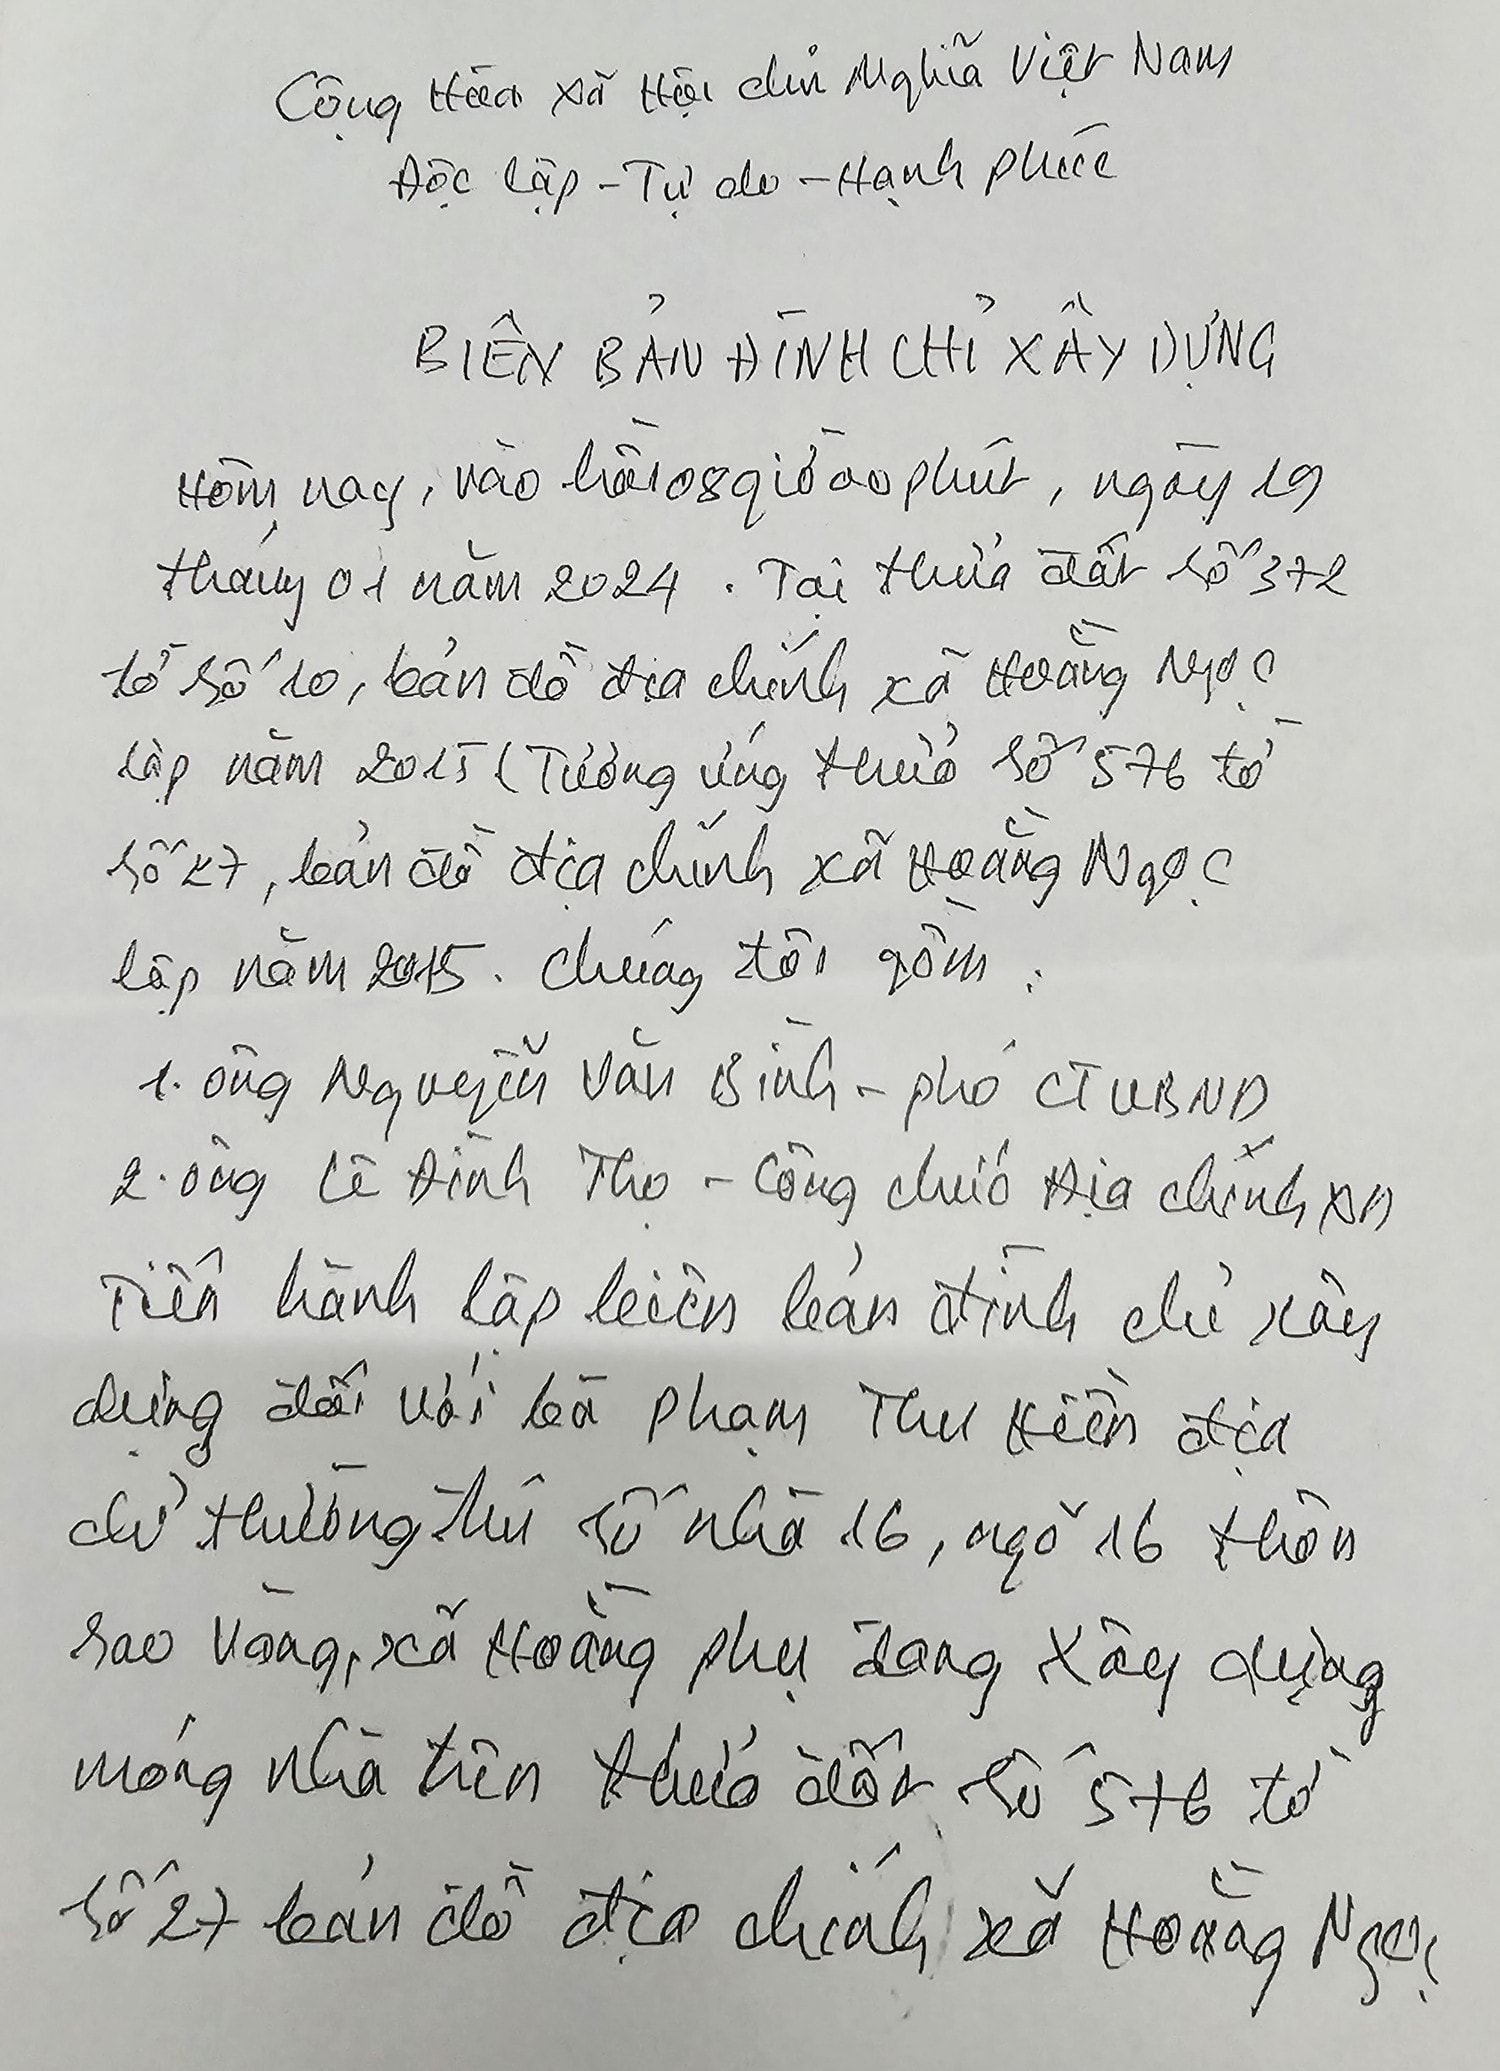 Cộng Hòa xã Hội chủ Nghĩa Việt Nam
Độc lập - Tự do - Hạnh phúc
BIÊN BẢN ĐÌNH CHỈ XÂY DỰNG
Hôm nay, vào hồi 08 giờ 00 phút, ngày 19
tháng 01 năm 2024. Tại thửa đất số 372
tờ số 10, bản đồ địa chính xã Hoằng Ngọc
lập năm 2015 (Tương ứng thửa số 576 tờ
số 27, bản đồ địa chính xã Hoằng Ngọc
lập năm 2015. chúng tôi gồm:
1. ông Nguyễn Văn Bình - phó CTUBND
2. ông Lê Đình Thọ - Công chức Địa chính XD
Tiến hành lập biên bản đình chỉ xây
dựng đối với bà Phạm Thu Hiền địa
chỉ thường trú số nhà 16, ngõ 16 thôn
Sao Vàng, xã Hoằng Phụ đang xây dựng
móng nhà trên thửa đất số 576 tờ
số 27 bản đồ địa chính xã Hoằng Ngọc